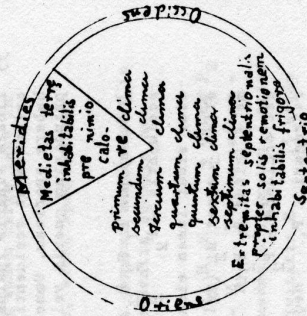 Occidens
Meridies
Medietas terrę
inhabitabilis
pre nimio
calo-
re
primum clima
secundum clima
tercium clima
quartum clima
quintum clima
sextum clima
septimum clima
Extremitas septentrionalis
propter solis remotionem
inhabitabilis frigore
Septentrio
Oriens